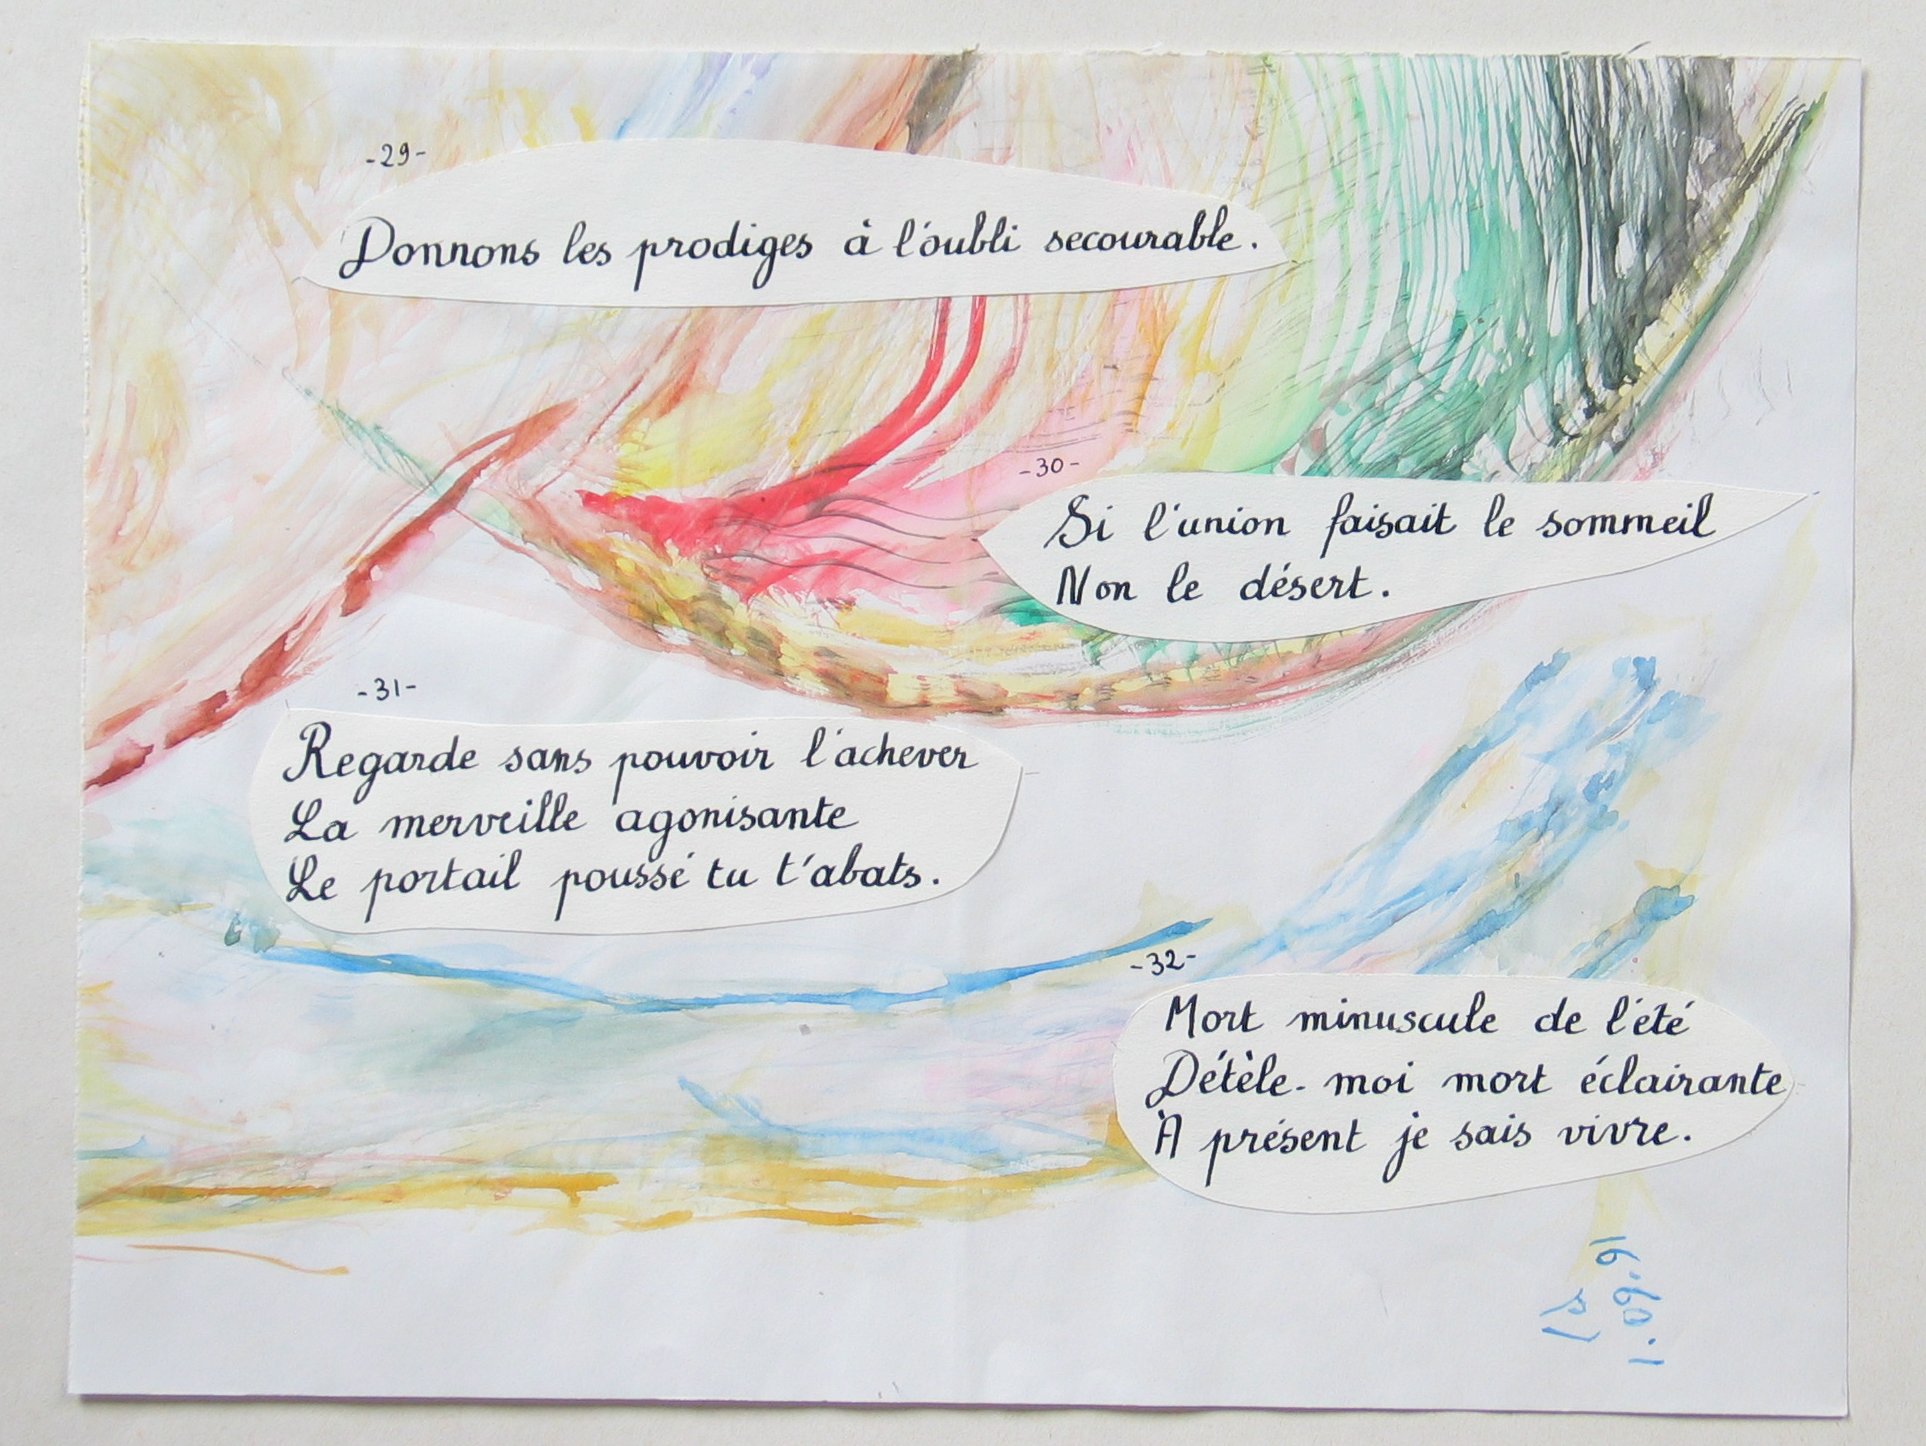 -29-
Donnons les prodiges à l'oubli secourable.
-30-
Si l'union faisait le sommeil
Non le désert.
-31-
Regarde sans pouvoir l'achever
La merveille agonisante
Le portail poussé tu t'abats.
-32-
Mort minuscule de l'été
Détèle-moi mort éclairante
À présent je sais vivre.
1.09.19